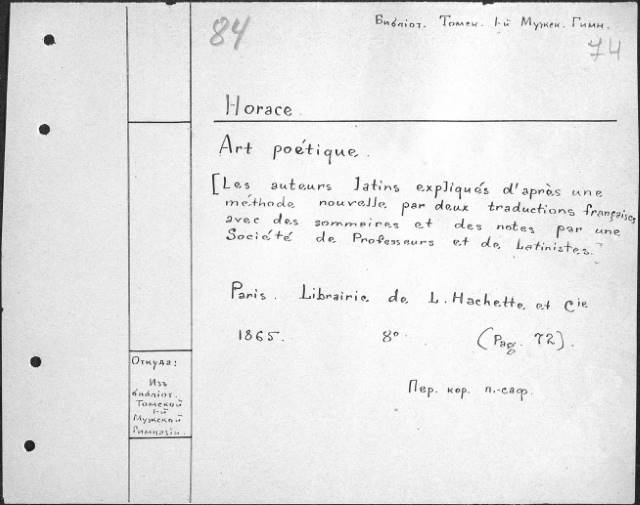 84
Библіот. Томск. 1-й Мужск. Гимн.
74
Horace.
Art poétique.
[Les auteurs latins expliqués d'après une
méthode nouvelle par deux traductions françaises
avec des sommaires et des notes par une
Société de Professeurs et de Latinistes.]
Paris. Librairie de L. Hachette et Cie
1865. 8° (Pag. 72).
Пер. кор. п.-саф.
Откуда:
Изъ
библіот.
Томской
1-й
Мужской
Гимназіи.